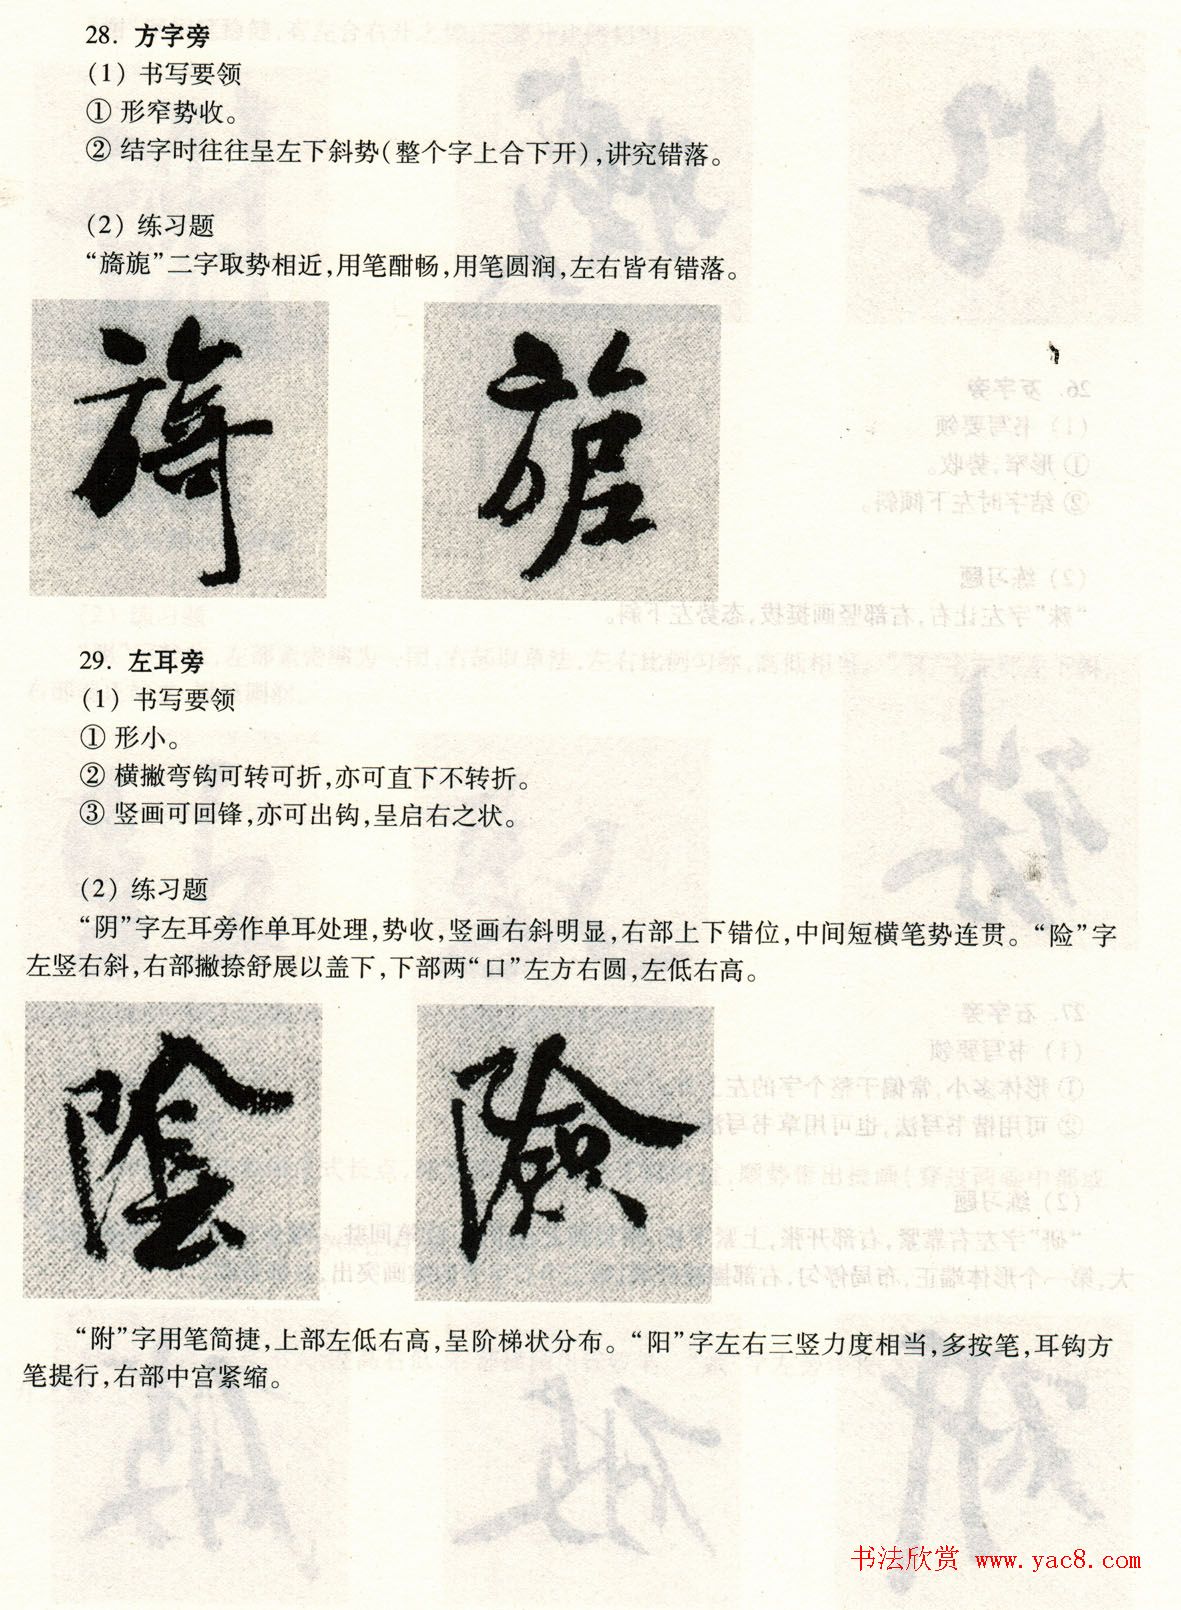 28. 方字旁
(1) 书写要领
① 形窄势收。
② 结字时往往呈左下斜势(整个字上合下开),讲究错落。
(2) 练习题
“旖旎”二字取势相近,用笔酣畅,用笔圆润,左右皆有错落。
旖 旎
29. 左耳旁
(1) 书写要领
① 形小。
② 横撇弯钩可转可折,亦可直下不转折。
③ 竖画可回锋,亦可出钩,呈启右之状。
(2) 练习题
“阴”字左耳旁作单耳处理,势收,竖画右斜明显,右部上下错位,中间短横笔势连贯。“险”字
左竖右斜,右部撇捺舒展以盖下,下部两“口”左方右圆,左低右高。
陰 險
“附”字用笔简捷,上部左低右高,呈阶梯状分布。“阳”字左右三竖力度相当,多按笔,耳钩方
笔提行,右部中宫紧缩。
书法欣赏 www.yac8.com